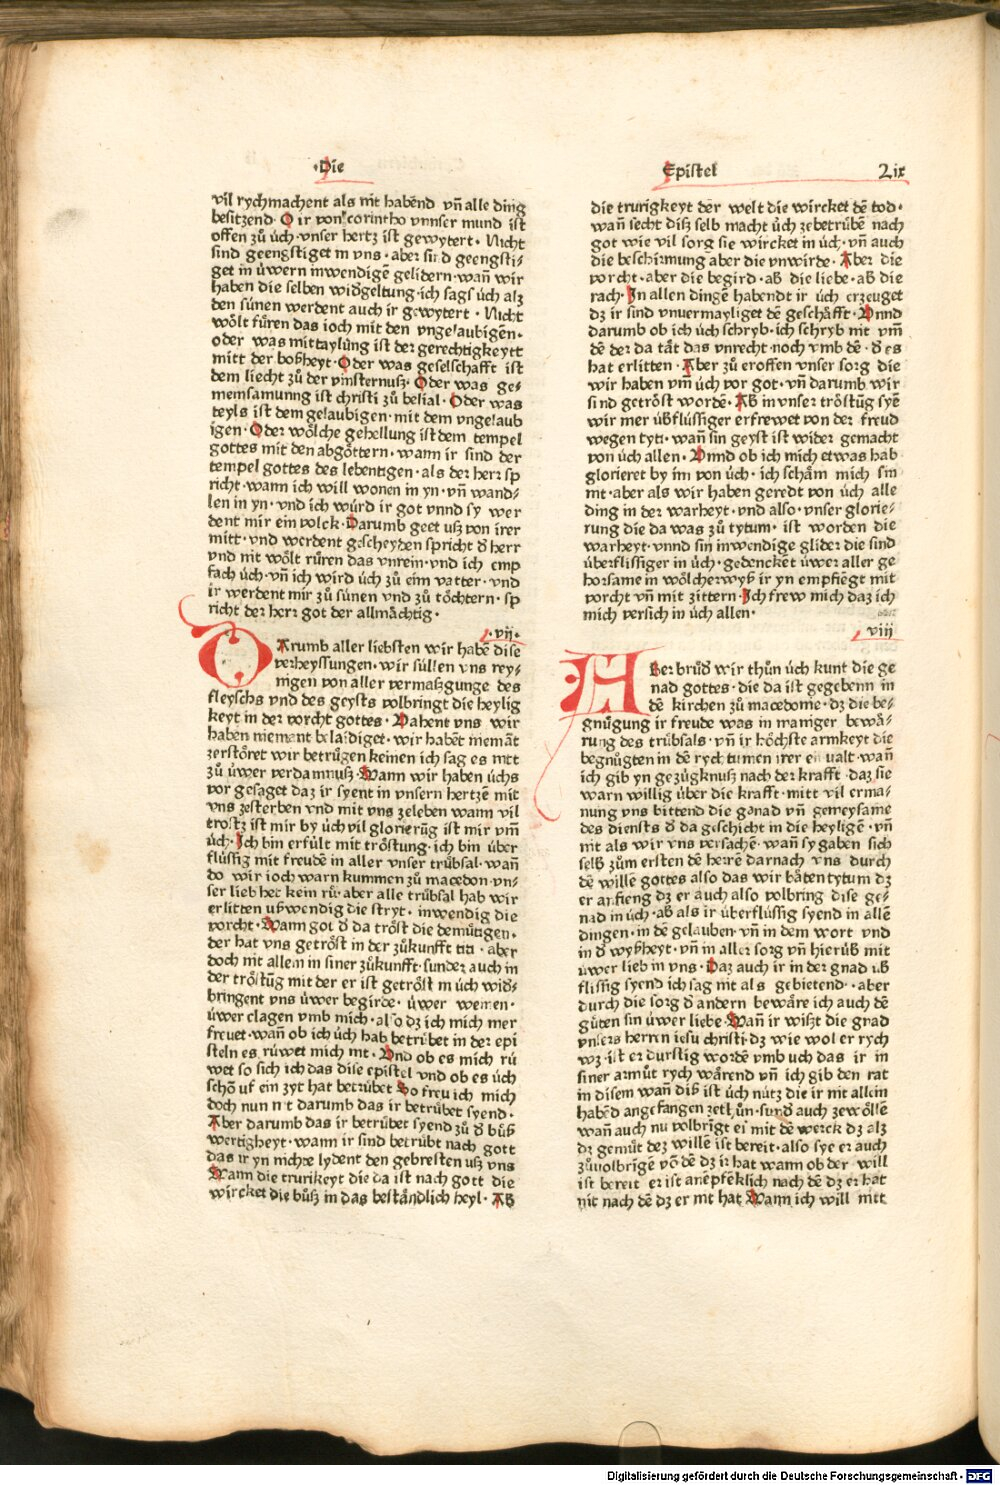 ·Die
Epistel
Lix
vil rychmachent als nit habēnd vn̄ alle ding
besitzend· O ir von corintho vnnser mund ist
offen zů ůch·vnser hertz ist gewytert· Nicht
sind geengstiget in vns· aber sind geengsti⸗
get in ůwern inwendigē gelidern·wan̄ wir
haben die selben widgeltung·ich sags ůch alz
den sünen werdent auch ir gewytert· Nicht
wőlt fůren das ioch mit den vngelaubigēn·
oder was mittaylūng ist der gerechtigkeytt
mitt der boßheyt· Oder was geselschafft ist
dem liecht zů der vinsternusz· Oder was ge⸗
meinsamung ist christi zů belial· Oder was
teyls ist dem gelaubigen·mit dem vngelaub
igen· Oder wőlche gehellung ist dem tempel
gottes mit den abgőttern· wann ir sind der
tempel gottes des lebentigen·als der herr sp
richt·wann ich will wonen in yn·vn̄ wand⸗
len in yn·vnd ich wůrd ir got vnnd sy wer
dent mir ein volck·Darumb geet usz von irer
mitt·vnd werdent gescheyden spricht đ herr
vnd nit wőlt růren das vnrein·vnd ich emp
fach ůch·vn̄ ich wird ůch zů eim vatter·vnd
ir werdent mir zů sünen vnd zů tőchtern·sp
richt der herr got der allmåchtig·
·vij·
DArumb aller liebsten wir habē dise
verheyssungen·wir süllen vns rey⸗
nigen von aller vermaßgunge des
fleyschs vnd des geysts volbringt die heylig
keyt in der vorcht gottes· Vahent vns wir
haben niemant belaidiget·wir habēt niemāt
zerstőret wir betrůgen keinen ich sag es nitt
zů ůwer verdamnusz·Wann wir haben ůchs
vor gesaget daz ir syent in vnsern hertzē mit
vns zesterben vnd mit vns zeleben wann vil
trostz ist mir by ůch vil glorierūg ist mir vm̄
ůch·Ich bin erfült mit trőstung·ich bin über
flüssig mit freudē in aller vnser trůbsal·wan̄
do wir ioch warn kummen zů macedon·vn⸗
ser lieb het kein rů·aber alle trůbsal hab wir
erlitten ußwendig die stryt· inwendig die
vorcht·Wann got đ da trőst die demütigen·
der hat vns getrőst in der zůkunfft titi·aber
doch nit allein in siner zůkunfft·sunder auch in
der trőstūg mit der er ist getrőst in ůch wid⸗
bringent vns ůwer begirde· ůwer weinen·
ůwer clagen vmb mich·also dz ich mich mer
frewet·wan̄ ob ich ůch hab betrůbet in der epi
steln es rúwet mich nit·Vnd ob es mich rú
wet so sich ich das dise epistel vnd ob es ůch
schō uf ein zyt hat betrůbet So freu ich mich
doch nun nit darumb das ir betrůbet syend·
Aber darumb das ir betrůbet syend zů đ bůß
wertigheyt·wann ir sind betrůbt nach gott
das ir yn nichte lydent den gebresten usz vns
Wann die trurikeyt die da ist nach gott die
wircket die bůsz in das beståndlich heyl·Ab
die trurigkeyt der welt die wircket dē tod·
wan̄ secht disz selb macht ůch zebetrůbē nach
got wie vil sorg sie wircket in ůch·vn̄ auch
die beschirmung aber die vnwirde·Aber die
vorcht·aber die begird·ab die liebe·ab die
rach·In allen dingē habendt ir ůch erzeuget
dz ir sind vnuermayliget dē geschåfft·Vnnd
darumb ob ich ůch schryb·ich schryb nit vm̄
dē der da tåt das vnrecht·noch vmb dē·đ es
hat erlitten·Aber zů eroffen vnser sorg die
wir haben vm̄ ůch vor got·vn̄ darumb wir
sind getrőst wordē·Ab in vnser trőstūg syē
wir mer übflüssiger erfrewet von der freud
wegen tyti·wan̄ sin geyst ist wider gemacht
von ůch allen·Vnnd ob ich mich etwas hab
glorieret by im von ůch·ich schåm mich sin
nit·aber als wir haben geredt von ůch alle
ding in der warheyt·vnd also·vnser glorie⸗
rung die da was zů tytum· ist worden die
warheyt·vnnd sin inwendige glider die sind
überflissiger in ůch·gedenckēt ůwer aller ge
horsame in wőlcherwyß ir yn empfiēgt mit
vorcht vn̄ mit zittern·Ich frew mich daz ich
mich versich in ůch allen·
viij
ABer brůđ wir thůn ůch kunt die ge
nad gottes·die da ist gegebenn in
dē kirchen zů macedonie·dz die be⸗
gnůgung ir freude was in maniger bewå⸗
rung des trůbsals·vn̄ ir hőchste armkeyt die
begnůgten in dē rychtumen irer einualt·wan̄
ich gib yn gezügknusz nach der krafft·daz sie
warn willig über die krafft·mitt vil erma⸗
nung vns bittend die gnad vn̄ gemeysame
des diensts đ da geschicht in die heyligē·vn̄
nit als wir vns versachē·wan̄ sy gaben sich
selb zům ersten dē herrē darnach vns durch
dē willē gottes also das wir båten tytum dz
er anfieng dz er auch also volbring dise ge⸗
nad in ůch·ab als ir überflüssig syend in allē
dingen·in dē gelauben·vn̄ in dem wort vnd
in đ wyßheyt·vn̄ in aller sorg vn̄ hierüb mit
ůwer lieb in vns·Daz auch ir in der gnad ub
flissig syend ich sag nit als gebietend··aber
durch die sorg đ andern bewåre ich auch dē
gůten sin ůwer liebe·Wan̄ ir wißt die gnad
vnsers herren iesu christi·dz wie wol er rych
wz·ist er durstig wordē vmb uch das ir in
siner armůt rych wårend vn̄ ich gib den rat
in disem wan̄ diß ist ůch nütz die ir nit allein
habēd angefangen zethůn·sund auch zewőllē
wan̄ auch nu volbrīgt ei mit dē werck dz alz
dz gemůt dez willē ist bereit·also sye er auch
zůuolbrīgē vō dē dz ir hat wann ob der will
ist bereit er ist anēpfēklich nach dē dz er hat
nit nach dē dz er nit hat·Wann ich will nitt
Digitalisierung gefördert durch die Deutsche Forschungsgemeinschaft - DFG